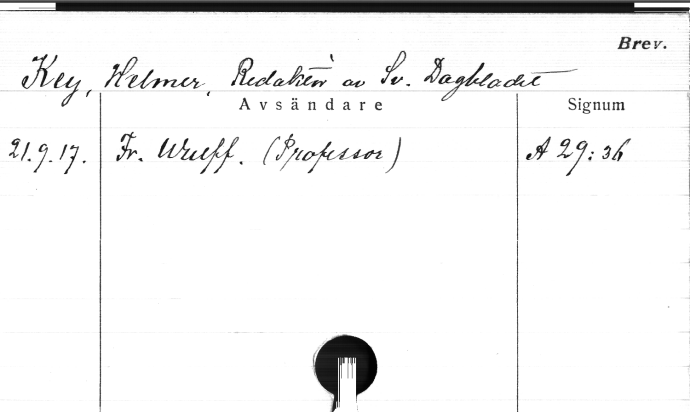 Brev.
Key, Helmer, Redaktör av Sv. Dagbladet
Avsändare Signum
21.9.17. Fr. Wulff. (Professor) A 29:36